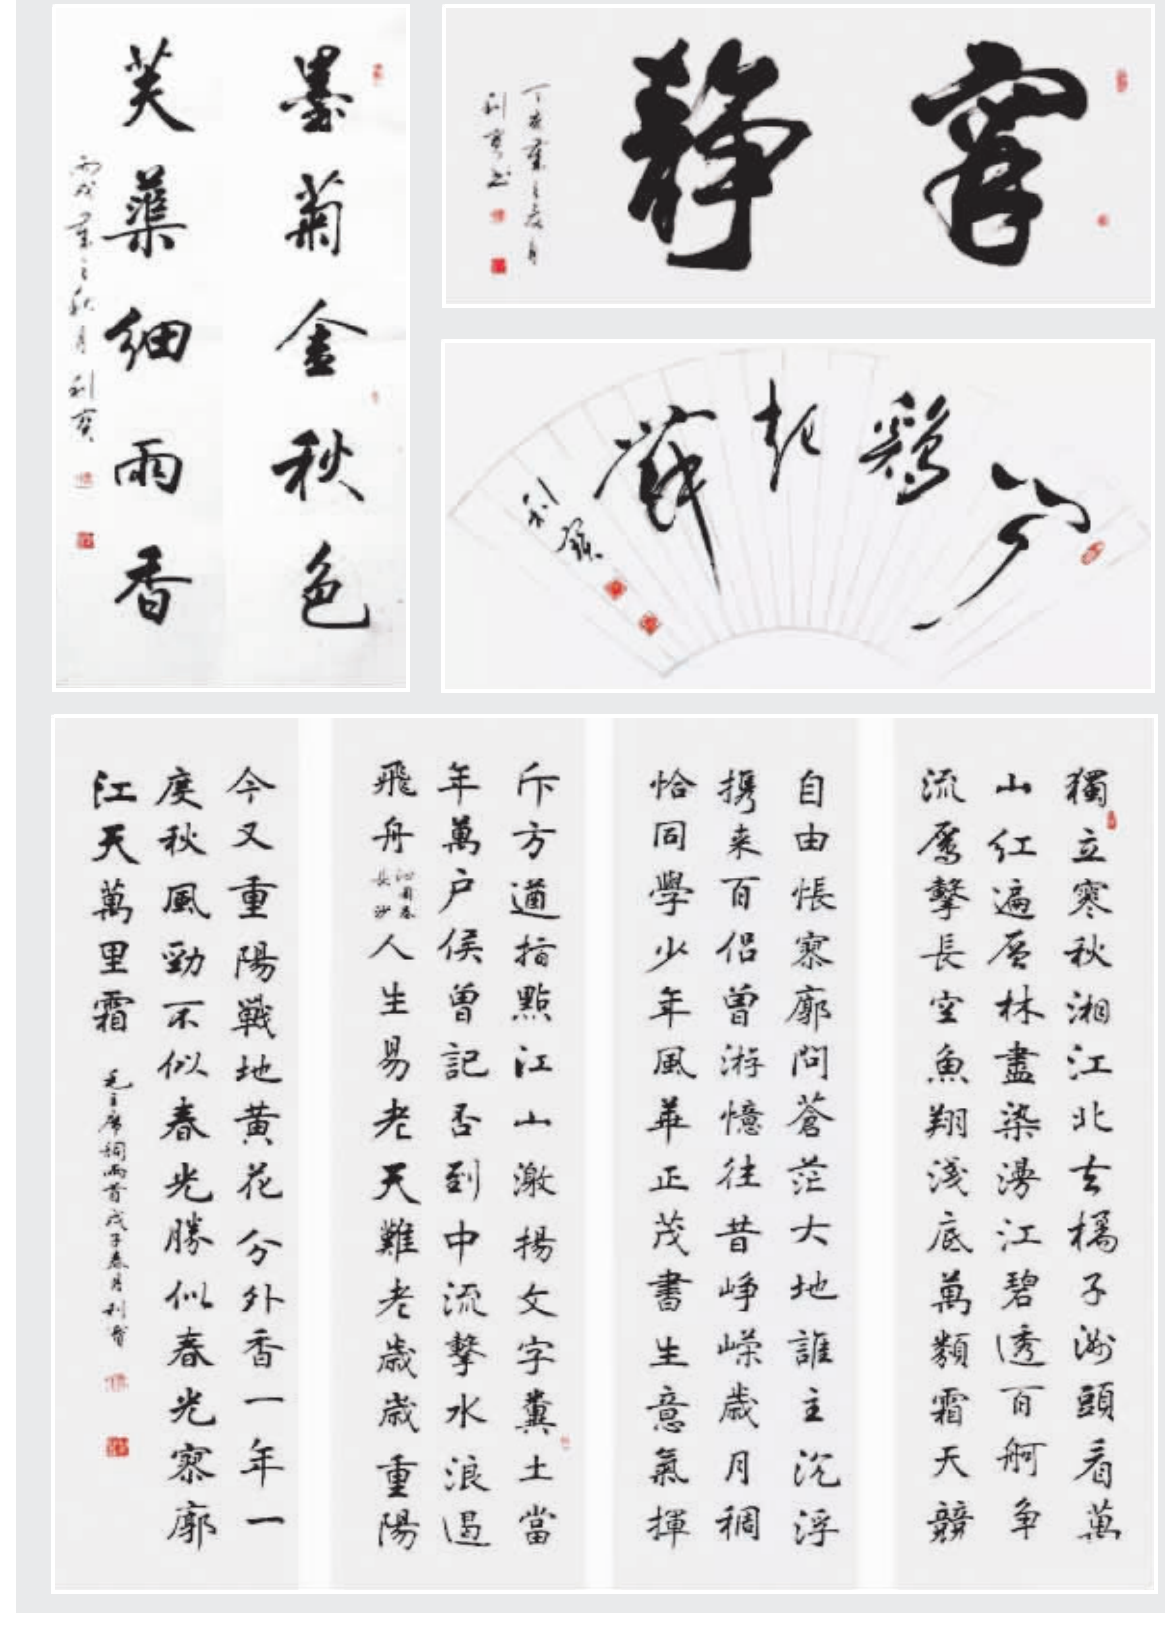 墨菊金秋色
芙蕖细雨香
丙戌業之秋月利寶
寧靜
丁亥業之夏月
利寶书
闻鷄起舞
利寶
獨立寒秋湘江北去橘子洲頭看萬
山紅遍層林盡染漫江碧透百舸争
流鷹擊長空魚翔淺底萬類霜天競
自由悵寥廓問蒼茫大地誰主沉浮
携来百侣曾游憶往昔峥嵘歲月稠
恰同學少年風華正茂書生意氣揮
斥方遒指點江山激揚文字糞土當
年萬户侯曾記否到中流擊水浪遏
飛舟沁園春長沙人生易老天難老歲歲重陽
今又重陽戰地黄花分外香一年一
度秋風勁不似春光勝似春光寥廓
江天萬里霜毛主席词兩首戊子春月利寶